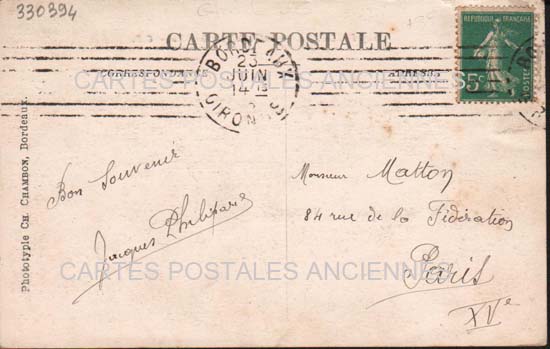 330394
CARTE POSTALE
CORRESPONDANCE
ADRESSE
BORDEAUX
23
JUIN
14
GIRONDE
REPUBLIQUE FRANÇAISE
5c
POSTES
CARTES POSTALES ANCIENNES
Phototypie CH. CHAMBON, Bordeaux.
Bon Souvenir
Jacques
Monsieur Matton
84 rue de la Fédération
Paris
XVe
CARTES POSTALES ANCIENNES